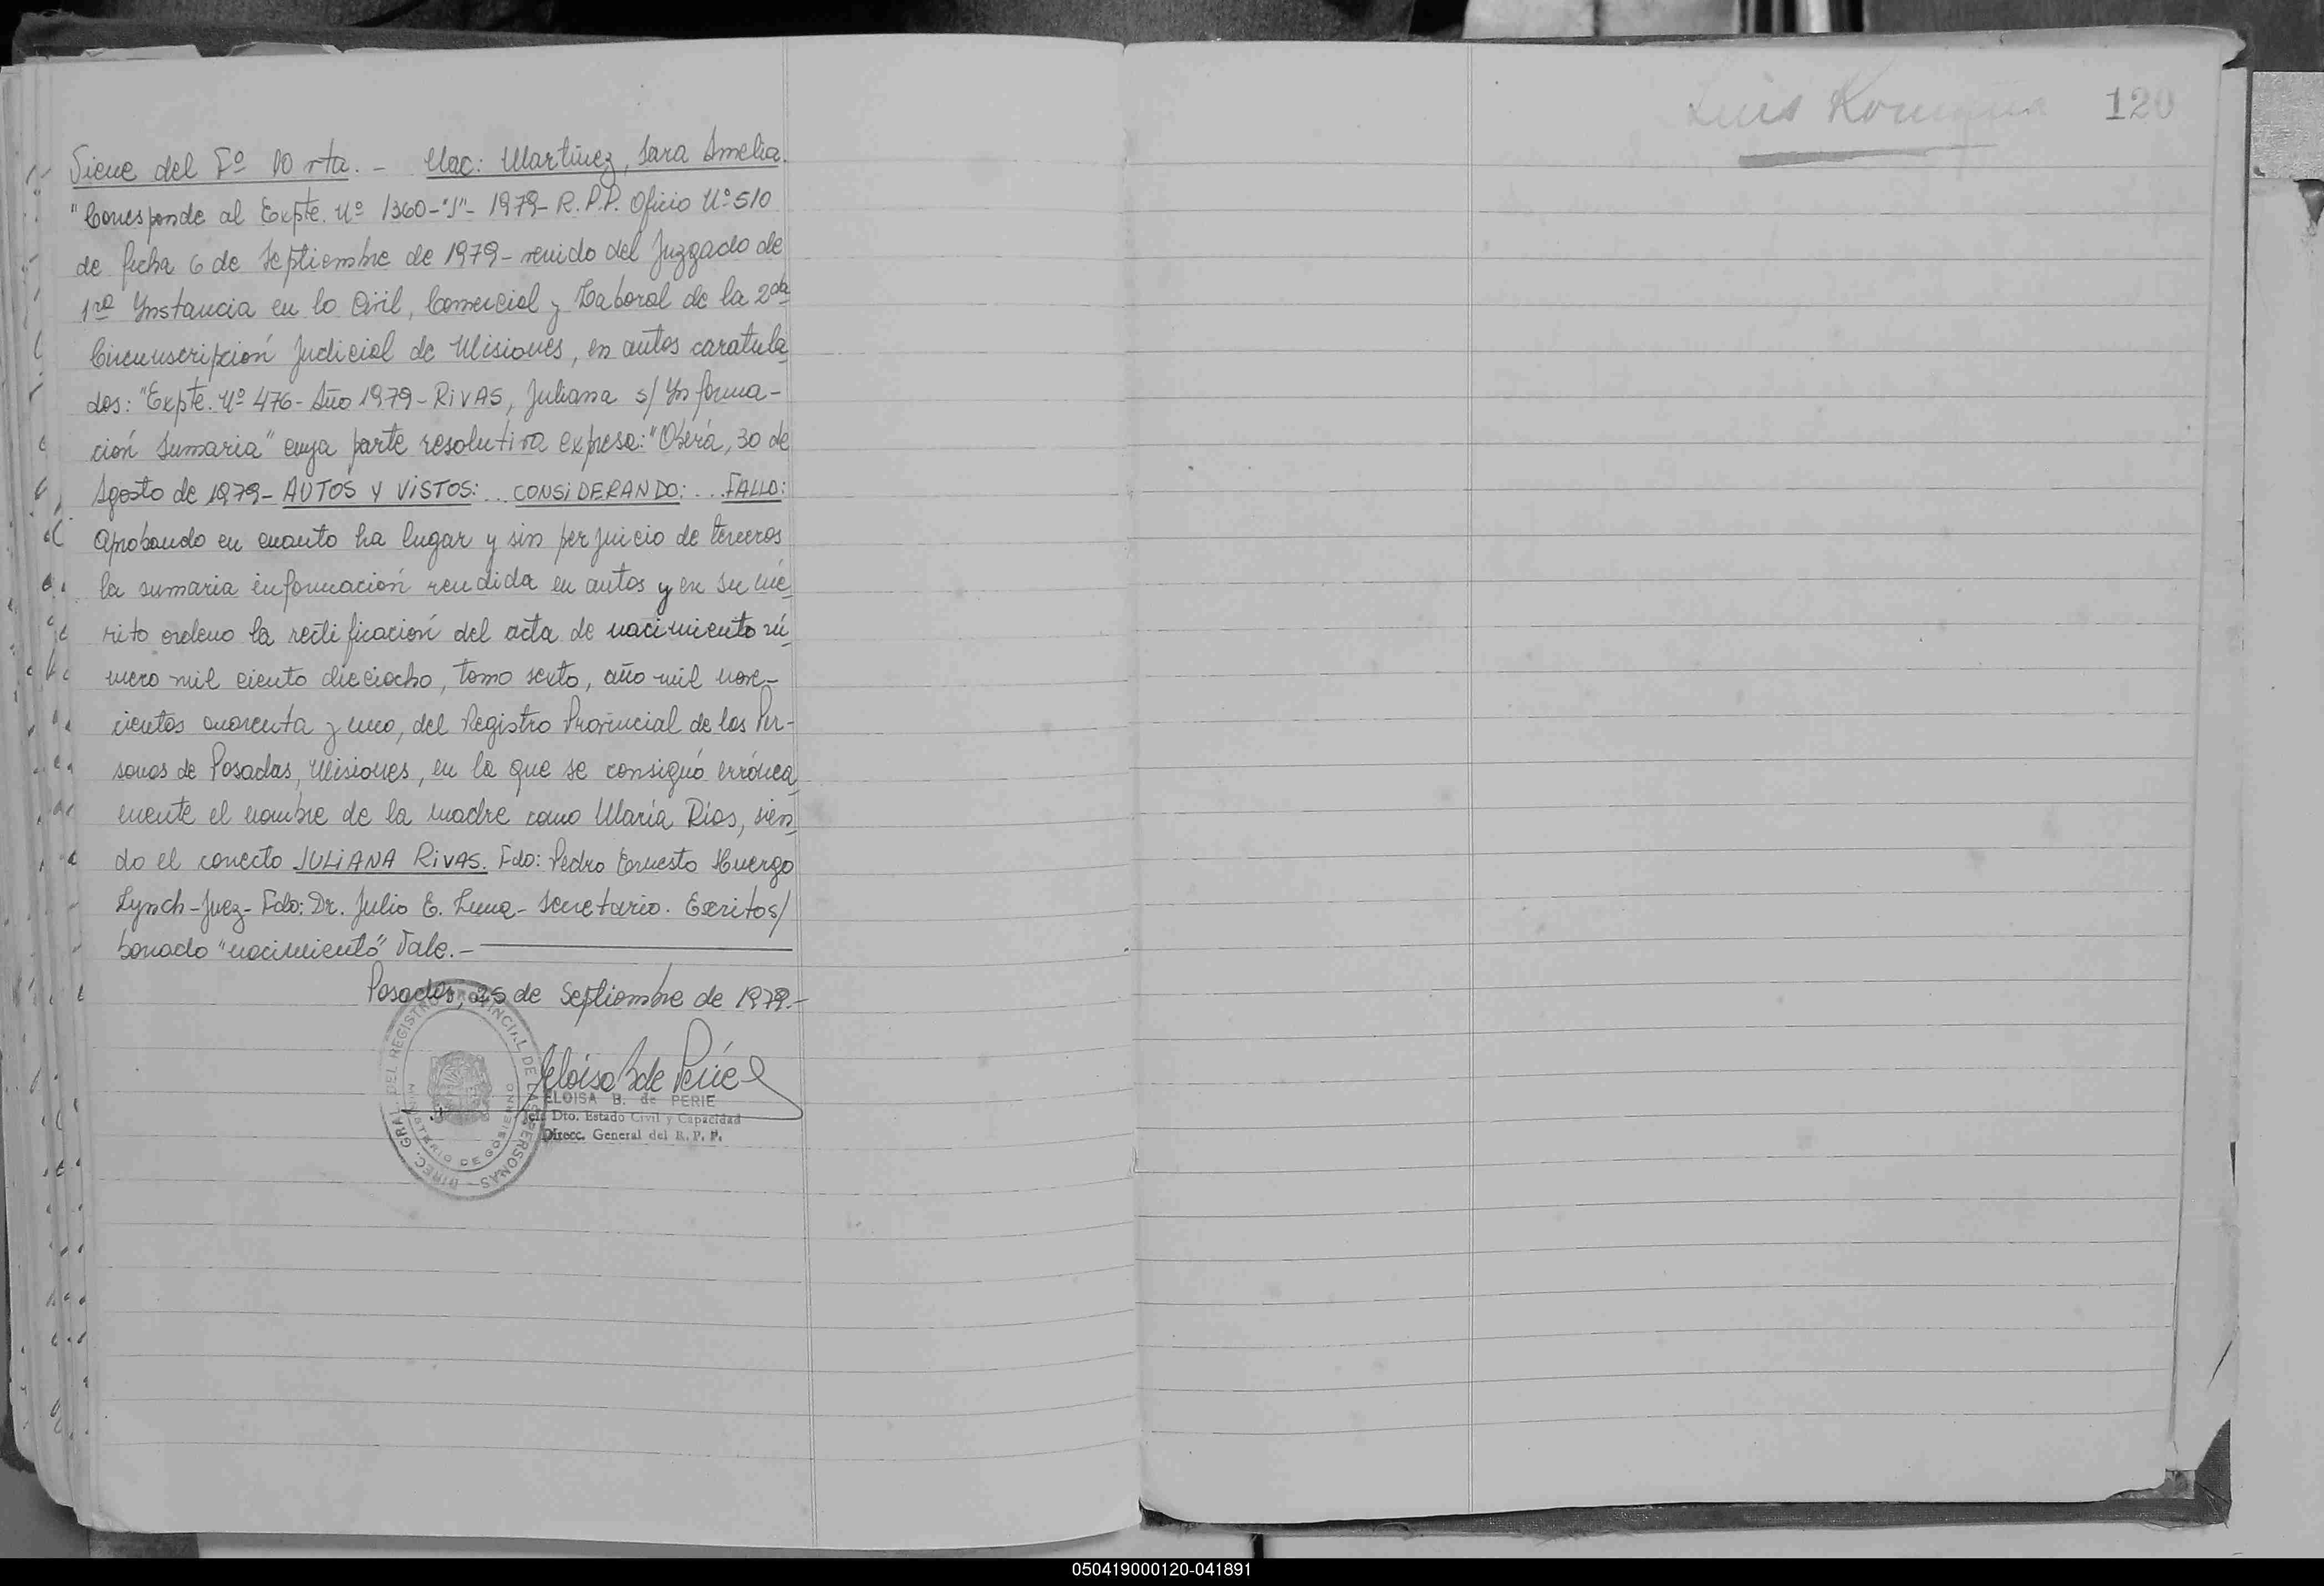 Viene del Fº 10 vta. - Nac: Martínez, Sara Amelia.
"Corresponde al Expte. Nº 1360-"J"- 1979- R.P.P. Oficio Nº 510
de fecha 6 de Septiembre de 1979- venido del Juzgado de
1ra Ynstancia en lo Civil, Comercial y Laboral de la 2da
Circunscripción Judicial de Misiones, en autos caratula
dos: "Expte. Nº 476- Año 1979- RIVAS, Juliana s/ Ynforma-
ción Sumaria" cuya parte resolutiva expresa: "Oberá, 30 de
Agosto de 1979- AUTOS Y VISTOS: ... CONSIDERANDO: ... FALLO:
Aprobando en cuanto ha lugar y sin perjuicio de terceros
la sumaria información rendida en autos y en su mé
rito ordeno la rectificación del acta de nacimiento nú
mero mil ciento dieciocho, tomo sexto, año mil nove-
cientos cuarenta y uno, del Registro Provincial de las Per-
sonas de Posadas, Misiones, en la que se consignó errónea
mente el nombre de la madre como María Ríos, sien
do el correcto JULIANA RIVAS. Fdo: Pedro Ernesto Huergo
Lynch-Juez- Fdo: Dr. Julio E. Luna- Secretario. Escritos/
borrado "nacimiento" Vale.-
Posadas, 25 de Septiembre de 1979.-
Eloisa B de Périé
ELOISA B. de PERIE
Jefe Dto. Estado Civil y Capacidad
Direcc. General del R. P. P.
DIREC. GRAL. DEL REGISTRO PROVINCIAL DE LAS PERSONAS
MINISTERIO DE GOBIERNO
Luis
120
050419000120-041891